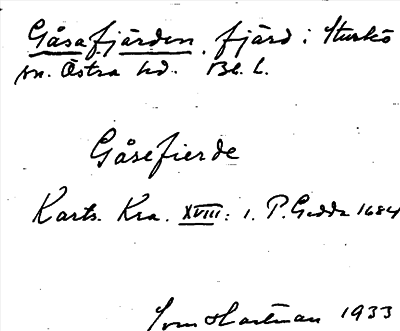 Gåsafjärden, fjärd i Sturkö
sn. Östra hd. Bl. L.
Gåsefierde
Karts. Kra. XVIII: 1. P. Gedda 1684
Hartman 1933